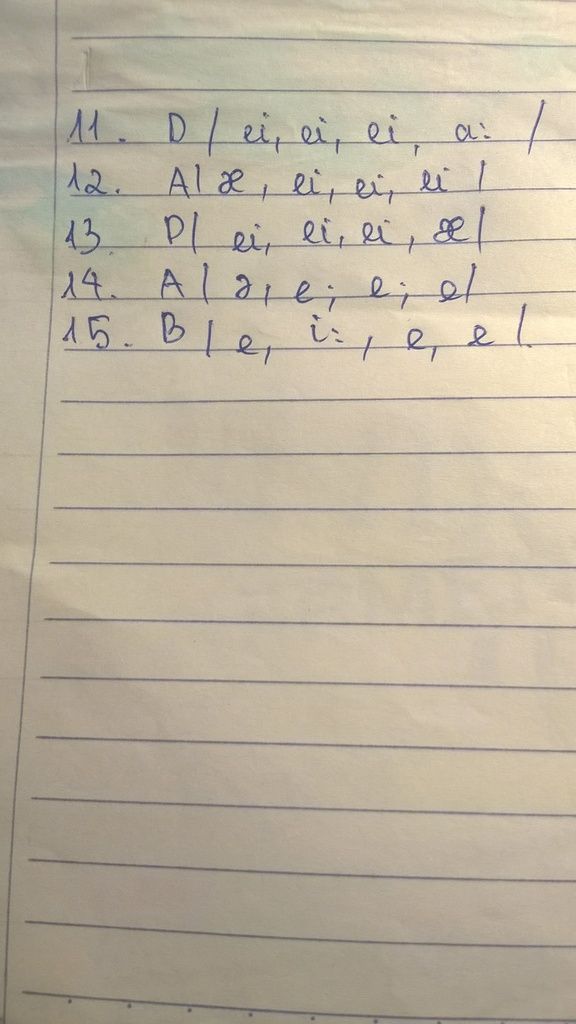 11. D / ei, ei, ei, a: /
12. A / æ, ei, ei, ei /
13. D / ei, ei, ei, æ /
14. A / ə, e; e; e /
15. B / e, i:, e, e /.